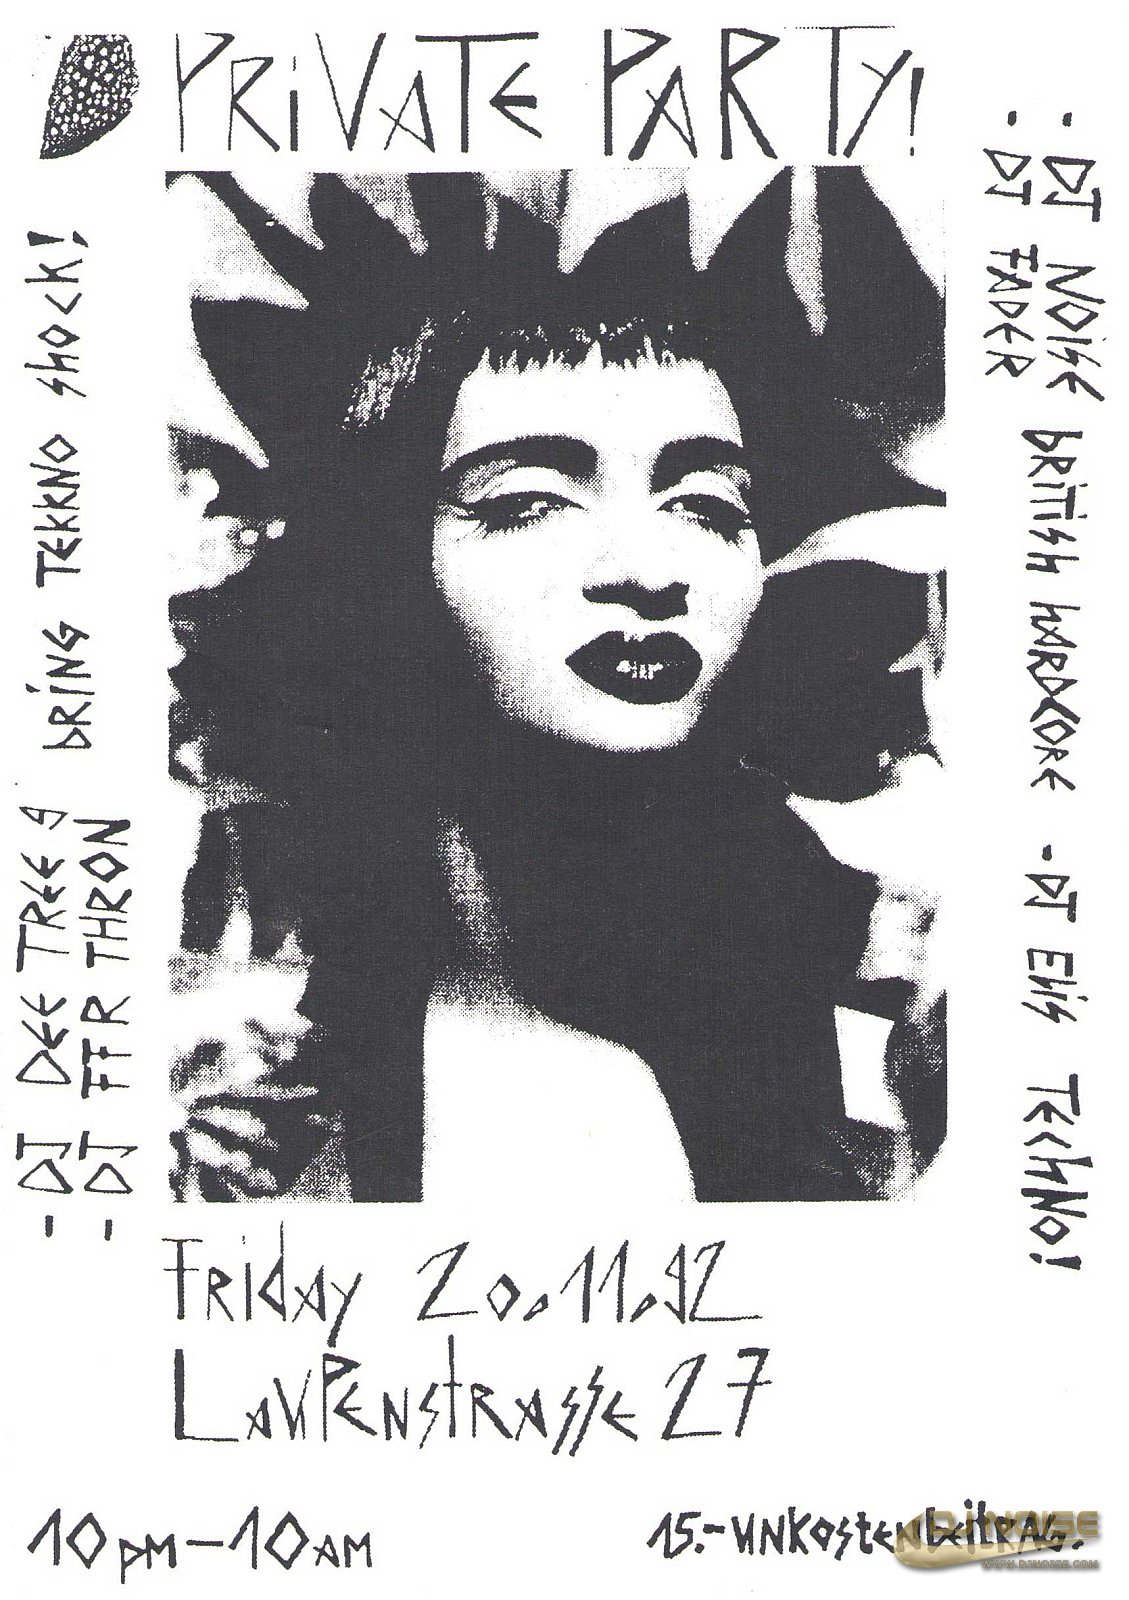 PRiVATE PARTY!
- DJ DEE TREE 9
- DJ FFR THRON
bRiNG TEKKNO shock!
: DJ NOiSE
: DJ FADER
bRiTiSH HARDCORE
- DJ Elis TEChNO!
FRiday 20.11.92
LAUPENstRASSE 27
10pm - 10am
15.- UNKostenbeitRAG.
DJ NOISE
WWW.DJNOISE.COM